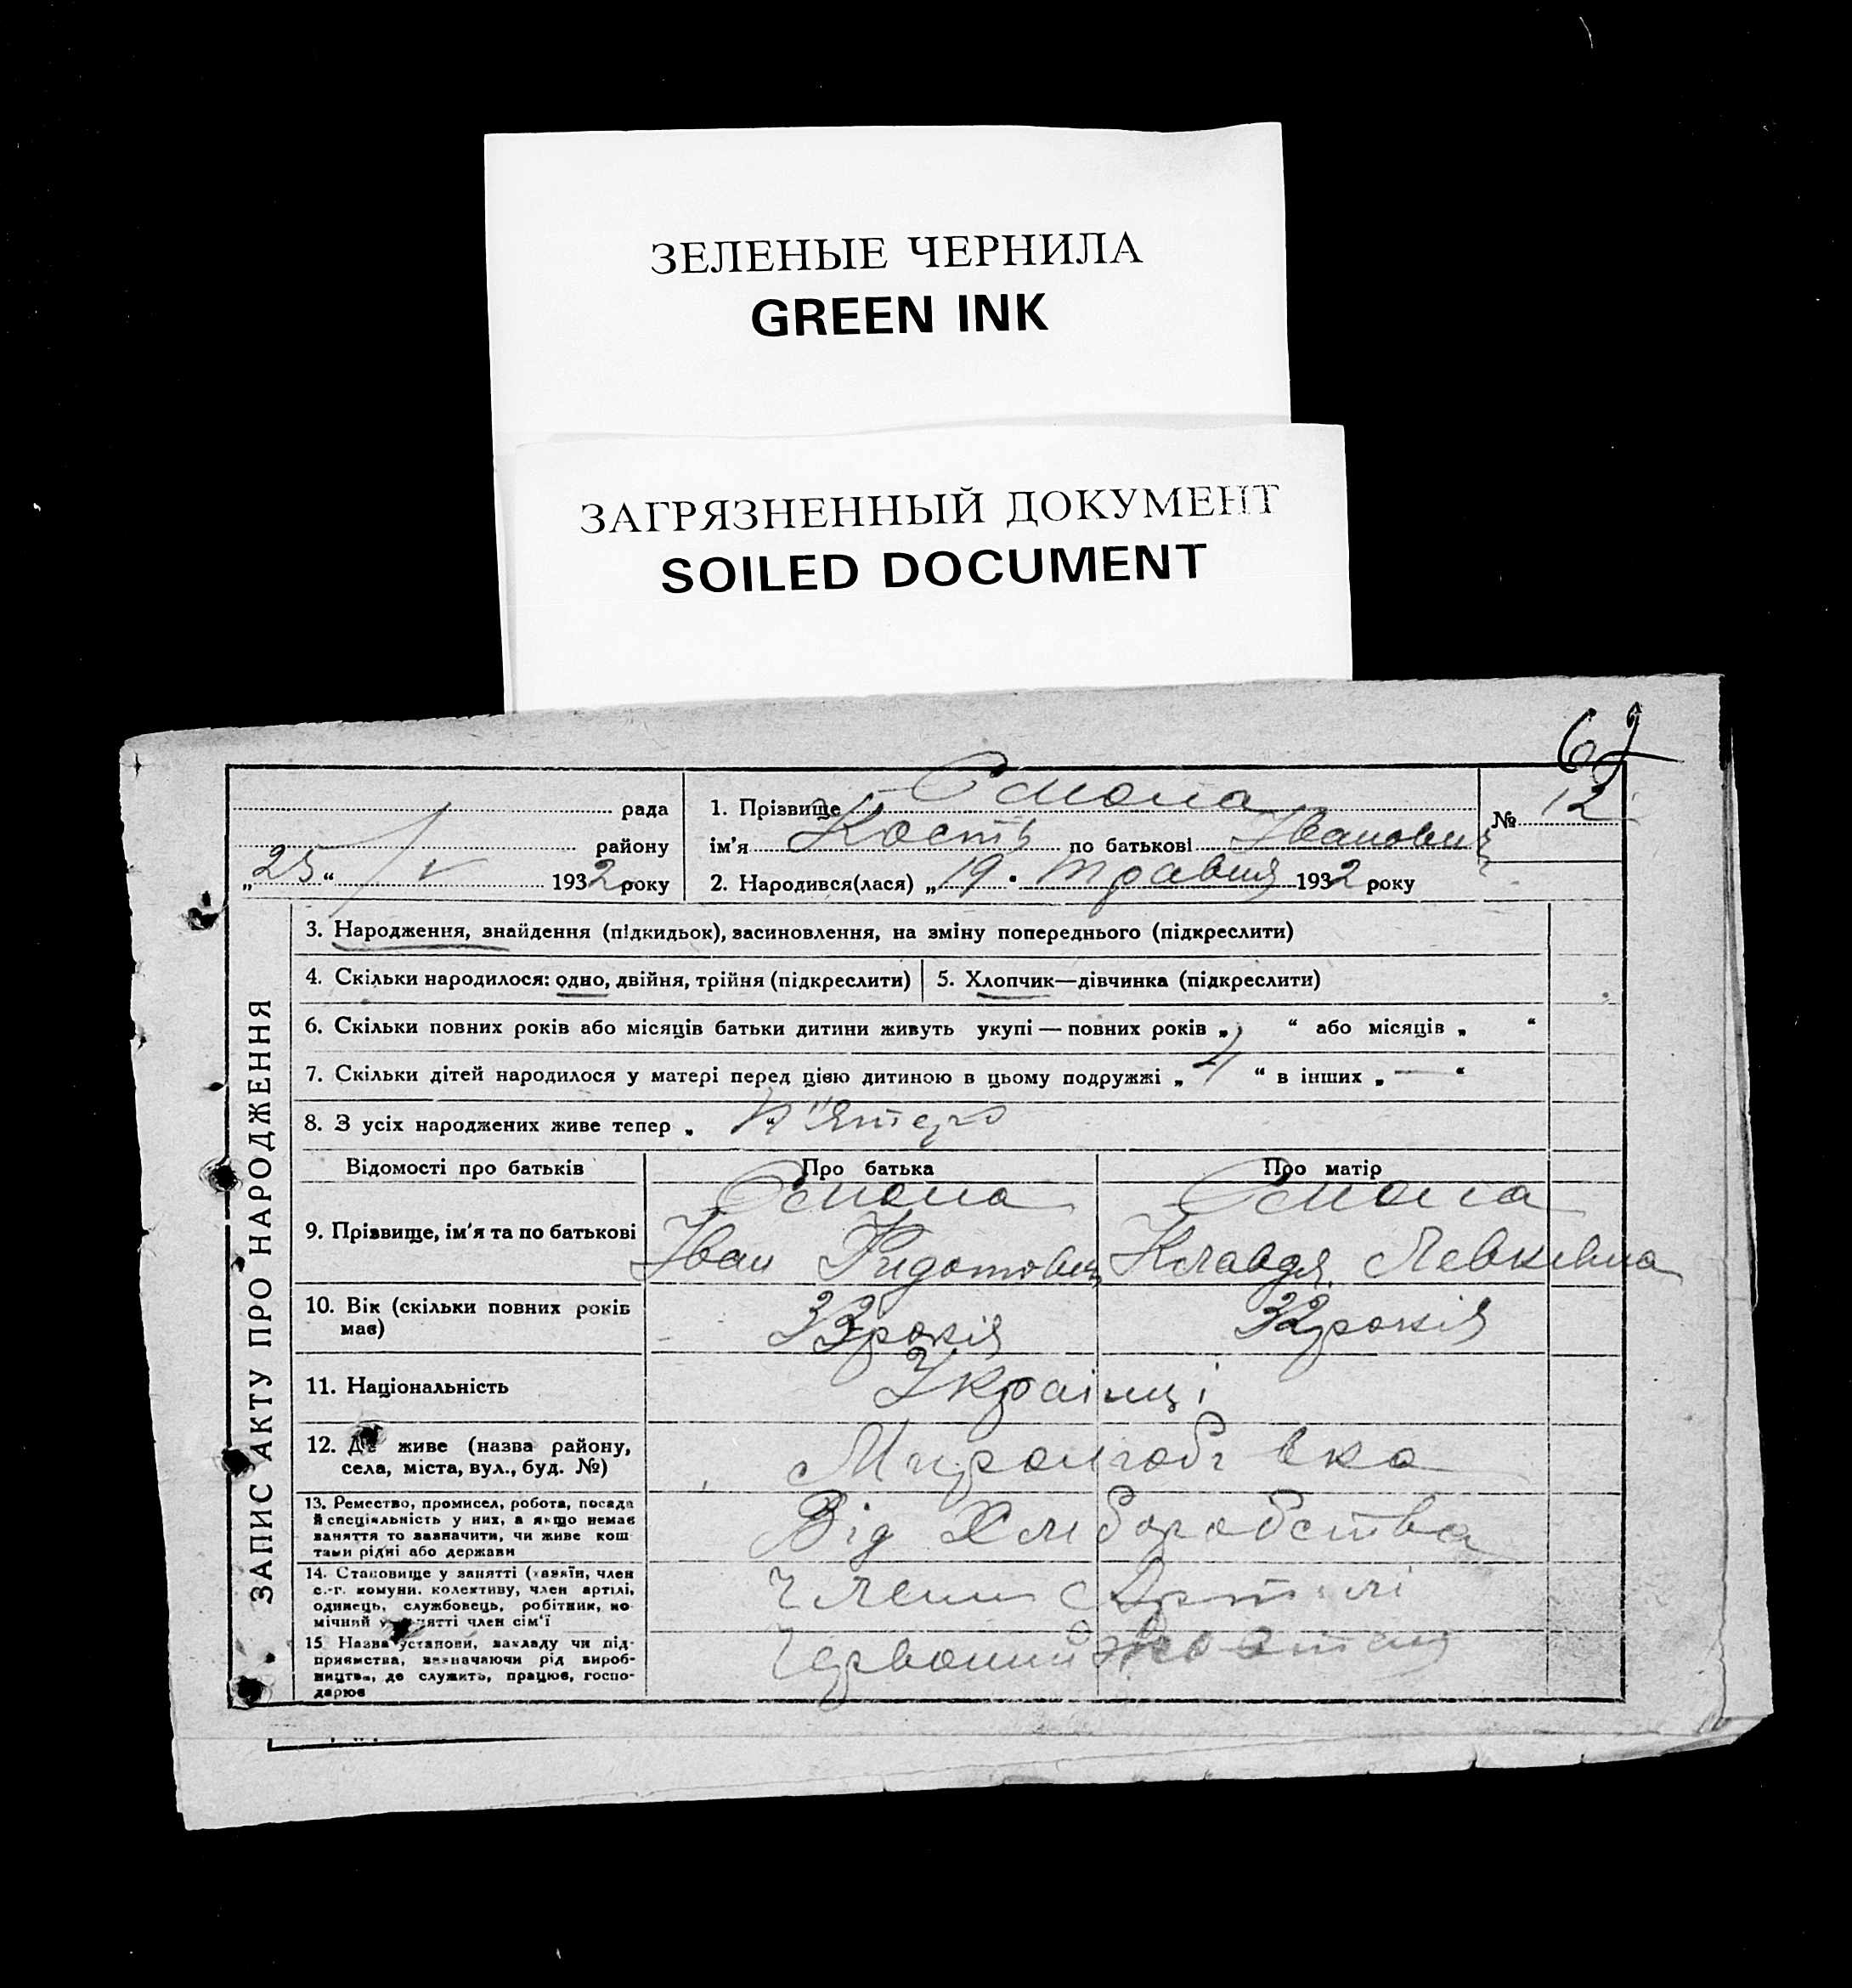 ЗЕЛЕНЫЕ ЧЕРНИЛА
GREEN INK
ЗАГРЯЗНЕННЫЙ ДОКУМЕНТ
SOILED DOCUMENT
ЗАПИС АКТУ ПРО НАРОДЖЕННЯ
рада
району
„25“ V 1932 року
1. Прізвище Смола
ім'я Кость по батькові Іванович
2. Народився(лася) „19. травня 1932 року
№ 12
3. Народження, знайдення (підкидьок), засиновлення, на зміну попереднього (підкреслити)
4. Скільки народилося: одно, двійня, трійня (підкреслити)
5. Хлопчик—дівчинка (підкреслити)
6. Скільки повних років або місяців батьки дитини живуть укупі — повних років „ “ або місяців „ “
7. Скільки дітей народилося у матері перед цією дитиною в цьому подружжі „4“ в інших „—“
8. З усіх народжених живе тепер „ п"ятеро
Відомості про батьків
Про батька
Про матір
9. Прізвище, ім'я та по батькові
Смола
Іван
Смола
Клавдя Левківна
10. Вік (скільки повних років має)
33 років
32 років
11. Національність
Українці
12. Де живе (назва району,
села, міста, вул., буд. №)
13. Ремество, промисел, робота, посада
й спеціяльність у них, а якщо немає
заняття то зазначити, чи живе кош
тами рідні або держави
Від Хліборобства
14. Становище у занятті (хазяїн, член
с.-г. комуни, колективу, член артілі,
одинець, службовець, робітник, по
мічний у занятті член сім'ї
Члени с Артілі
15 Назва установи, закладу чи під-
приємства, зазначаючи рід вироб-
ництва, де служить, працює, госпо-
дарює
Червоний